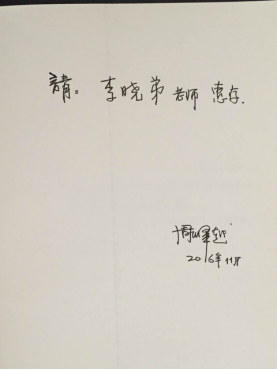 請：李晓弟老师 惠存.
2016年11月